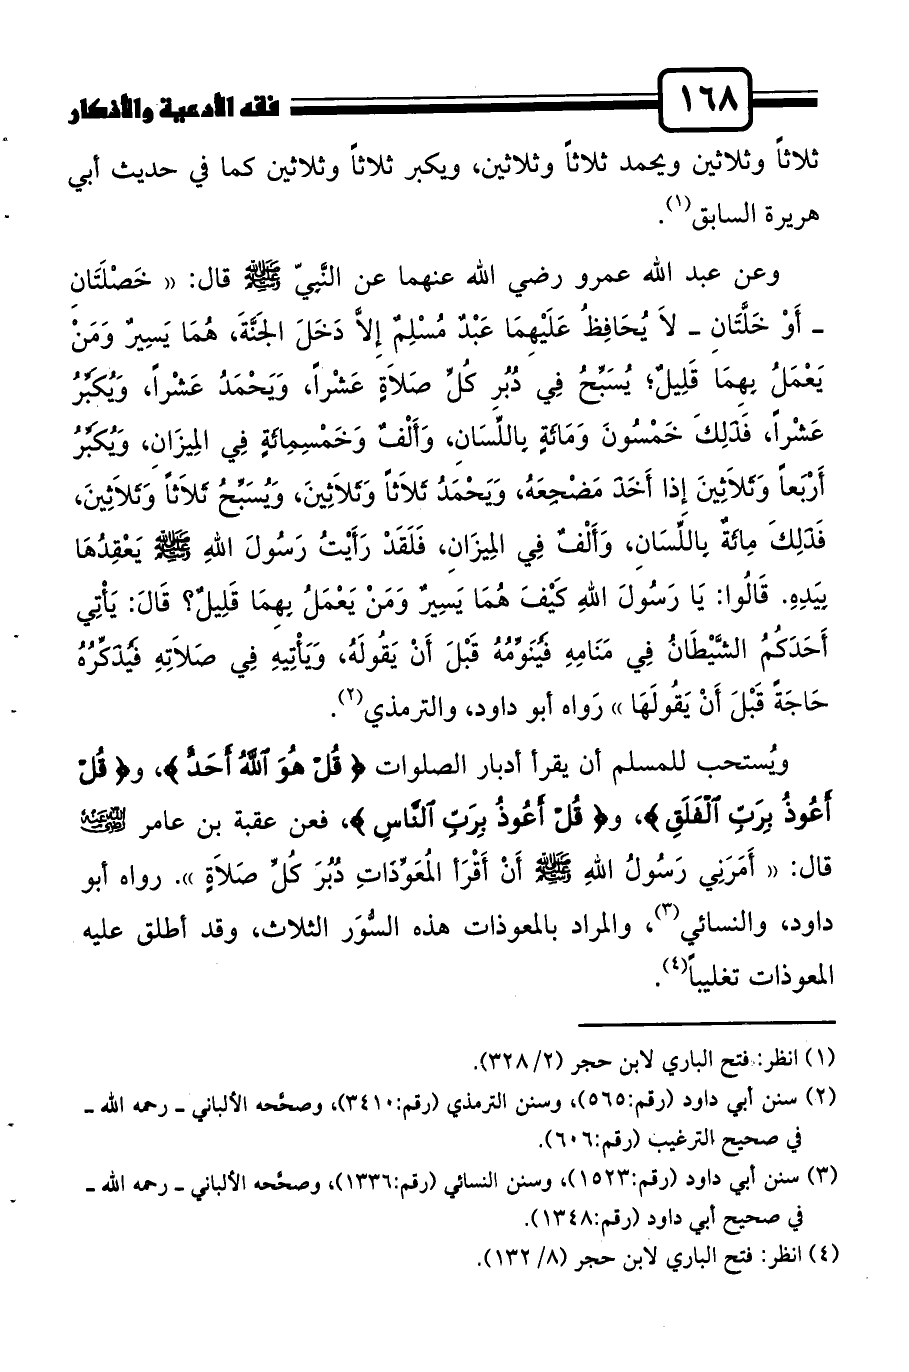 ١٦٨ فقه الأدعية والأذكار
ثلاثاً وثلاثين ويحمد ثلاثاً وثلاثين، ويكبر ثلاثاً وثلاثين كما في حديث أبي
هريرة السابق(١).
وعن عبد الله عمرو رضي الله عنهما عن النَّبيّ ﷺ قال: « خَصْلَتَانِ
ـ أَوْ خَلَّتَانِ ـ لاَ يُحَافِظُ عَلَيْهِمَا عَبْدٌ مُسْلِمٌ إِلاَّ دَخَلَ الجَنَّةَ، هُمَا يَسِيرٌ وَمَنْ
يَعْمَلُ بِهِمَا قَلِيلٌ؛ يُسَبِّحُ فِي دُبُرِ كُلِّ صَلاَةٍ عَشْراً، وَيَحْمَدُ عَشْراً، وَيُكَبِّرُ
عَشْراً، فَذَلِكَ خَمْسُونَ وَمَائَةٍ بِاللِّسَانِ، وَأَلْفٌ وَخَمْسِمِائَةٍ فِي المِيزَانِ، وَيُكَبِّرُ
أَرْبَعاً وَثَلاَثِينَ إِذا أَخَذَ مَضْجِعَهُ، وَيَحْمَدُ ثَلاَثاً وَثَلاَثِينَ، وَيُسَبِّحُ ثَلاَثاً وَثَلاَثِينَ،
فَذَلِكَ مِائَةٌ بِاللِّسَانِ، وَأَلْفٌ فِي المِيزَانِ، فَلَقَدْ رَأَيْتُ رَسُولَ اللهِ ﷺ يَعْقِدُهَا
بِيَدِهِ. قَالُوا: يَا رَسُولَ اللهِ كَيْفَ هُمَا يَسِيرٌ وَمَنْ يَعْمَلُ بِهِمَا قَلِيلٌ؟ قَالَ: يَأْتِي
أَحَدَكُمُ الشَّيْطَانُ فِي مَنَامِهِ فَيُنَوِّمُهُ قَبْلَ أَنْ يَقُولَهُ، وَيَأْتِيهِ فِي صَلاَتِهِ فَيُذَكِّرُهُ
حَاجَةً قَبْلَ أَنْ يَقُولَهَا » رَواه أبو داود، والترمذي(٢).
ويُستحب للمسلم أن يقرأ أدبار الصلوات ﴿ قُلْ هُوَ ٱللَّهُ أَحَدٌ ﴾، و﴿ قُلْ
أَعُوذُ بِرَبِّ ٱلْفَلَقِ ﴾، و﴿ قُلْ أَعُوذُ بِرَبِّ ٱلنَّاسِ ﴾، فعن عقبة بن عامر رضي الله عنه
قال: « أَمَرَنِي رَسُولُ اللهِ ﷺ أَنْ أَقْرَأَ المُعَوِّذَاتِ دُبُرَ كُلِّ صَلاَةٍ ». رواه أبو
داود، والنسائي(٣)، والمراد بالمعوذات هذه السُّوَر الثلاث، وقد أطلق عليه
المعوذات تغليباً(٤).
(١) انظر: فتح الباري لابن حجر (٢/ ٣٢٨).
(٢) سنن أبي داود (رقم:٥٦٥)، وسنن الترمذي (رقم:٣٤١٠)، وصحَّحه الألباني ـ رحمه الله ـ
في صحيح الترغيب (رقم:٦٠٦).
(٣) سنن أبي داود (رقم:١٥٢٣)، وسنن النسائي (رقم:١٣٣٦)، وصحَّحه الألباني ـ رحمه الله ـ
في صحيح أبي داود (رقم:١٣٤٨).
(٤) انظر: فتح الباري لابن حجر (٨/ ١٣٢).